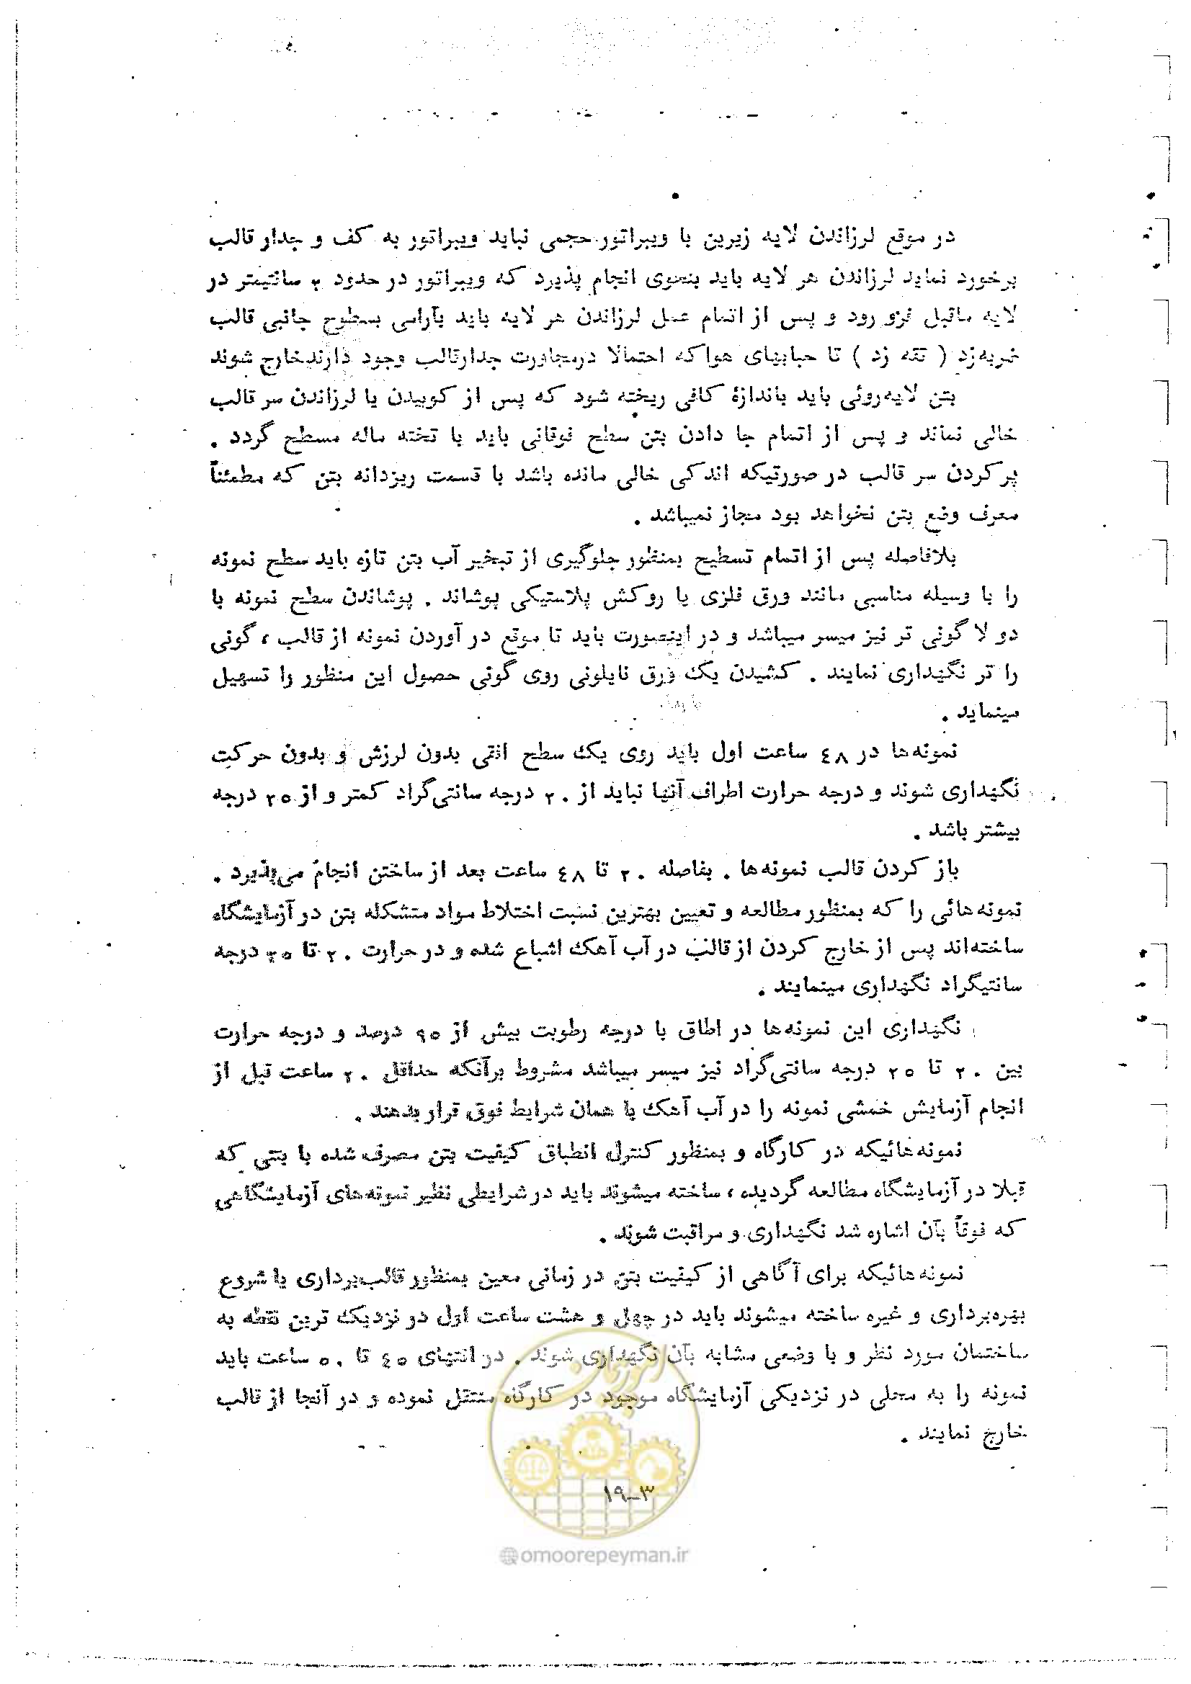 در موقع لرزاندن لایه زیرین با ویبراتور حجمی نباید ویبراتور به کف و جدار قالب
برخورد نماید لرزاندن هر لایه باید بنحوی انجام پذیرد که ویبراتور در حدود ۲ سانتیمتر در
لایه ماقبل فرو رود و پس از اتمام عمل لرزاندن هر لایه باید بآرامی بسطوح جانبی قالب
ضربه‌زد ( تقه زد ) تا حبابهای هوا که احتمالا در مجاورت جدار قالب وجود دارند خارج شوند
بتن لایه‌روئی باید باندازۀ کافی ریخته شود که پس از کوبیدن یا لرزاندن سر قالب
خالی نماند و پس از اتمام جا دادن بتن سطح فوقانی باید با تخته ماله مسطح گردد .
پر کردن سر قالب در صورتیکه اندکی خالی مانده باشد با قسمت ریزدانه بتن که مطمئناً
معرف وضع بتن نخواهد بود مجاز نمیباشد .
بلافاصله پس از اتمام تسطیح بمنظور جلوگیری از تبخیر آب بتن تازه باید سطح نمونه
را با وسیله مناسبی مانند ورق فلزی یا روکش پلاستیکی پوشاند . پوشاندن سطح نمونه با
دو لا گونی تر نیز میسر میباشد و در اینصورت باید تا موقع در آوردن نمونه از قالب ، گونی
را تر نگهداری نمایند . کشیدن یک ورق نایلونی روی گونی حصول این منظور را تسهیل
مینماید .
نمونه‌ها در ٤٨ ساعت اول باید روی یک سطح افقی بدون لرزش و بدون حرکت
نگهداری شوند و درجه حرارت اطراف آنها نباید از ۲۰ درجه سانتی‌گراد کمتر و از ۲۵ درجه
بیشتر باشد .
باز کردن قالب نمونه‌ها . بفاصله ۲۰ تا ٤٨ ساعت بعد از ساختن انجام می‌پذیرد .
نمونه‌هائی را که بمنظور مطالعه و تعیین بهترین نسبت اختلاط مواد متشکله بتن در آزمایشگاه
ساخته‌اند پس از خارج کردن از قالب در آب آهک اشباع شده و در حرارت ۲۰ تا ۲۵ درجه
سانتیگراد نگهداری مینمایند .
نگهداری این نمونه‌ها در اطاق با درجه رطوبت بیش از ۹۵ درصد و درجه حرارت
بین ۲۰ تا ۲۵ درجه سانتی‌گراد نیز میسر میباشد مشروط برآنکه حداقل ۲۰ ساعت قبل از
انجام آزمایش خمشی نمونه را در آب آهک با همان شرایط فوق قرار بدهند .
نمونه‌هائیکه در کارگاه و بمنظور کنترل انطباق کیفیت بتن مصرف شده با بتنی که
قبلا در آزمایشگاه مطالعه گردیده ، ساخته میشوند باید در شرایطی نظیر نمونه‌های آزمایشگاهی
که فوقاً بآن اشاره شد نگهداری و مراقبت شوند .
نمونه‌هائیکه برای آگاهی از کیفیت بتن در زمانی معین بمنظور قالب‌برداری یا شروع
بهره‌برداری و غیره ساخته میشوند باید در چهل و هشت ساعت اول در نزدیک ترین نقطه به
ساختمان مورد نظر و با وضعی مشابه بآن نگهداری شوند . در انتهای ٤٥ تا ٥٠ ساعت باید
نمونه را به محلی در نزدیکی آزمایشگاه موجود در کارگاه منتقل نموده و در آنجا از قالب
خارج نمایند .
۱۹-۳
امور پیمان
@omoorepeyman.ir